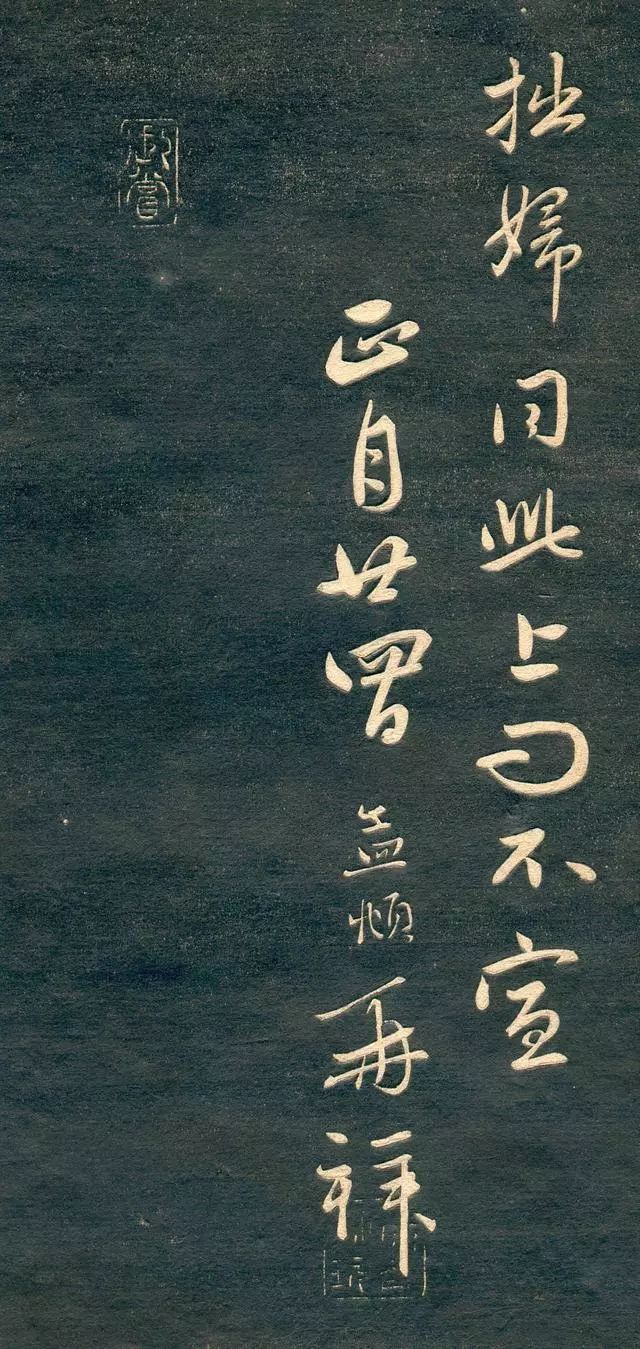 拙婦同此上問不宣
正月廿四日孟頫再拜